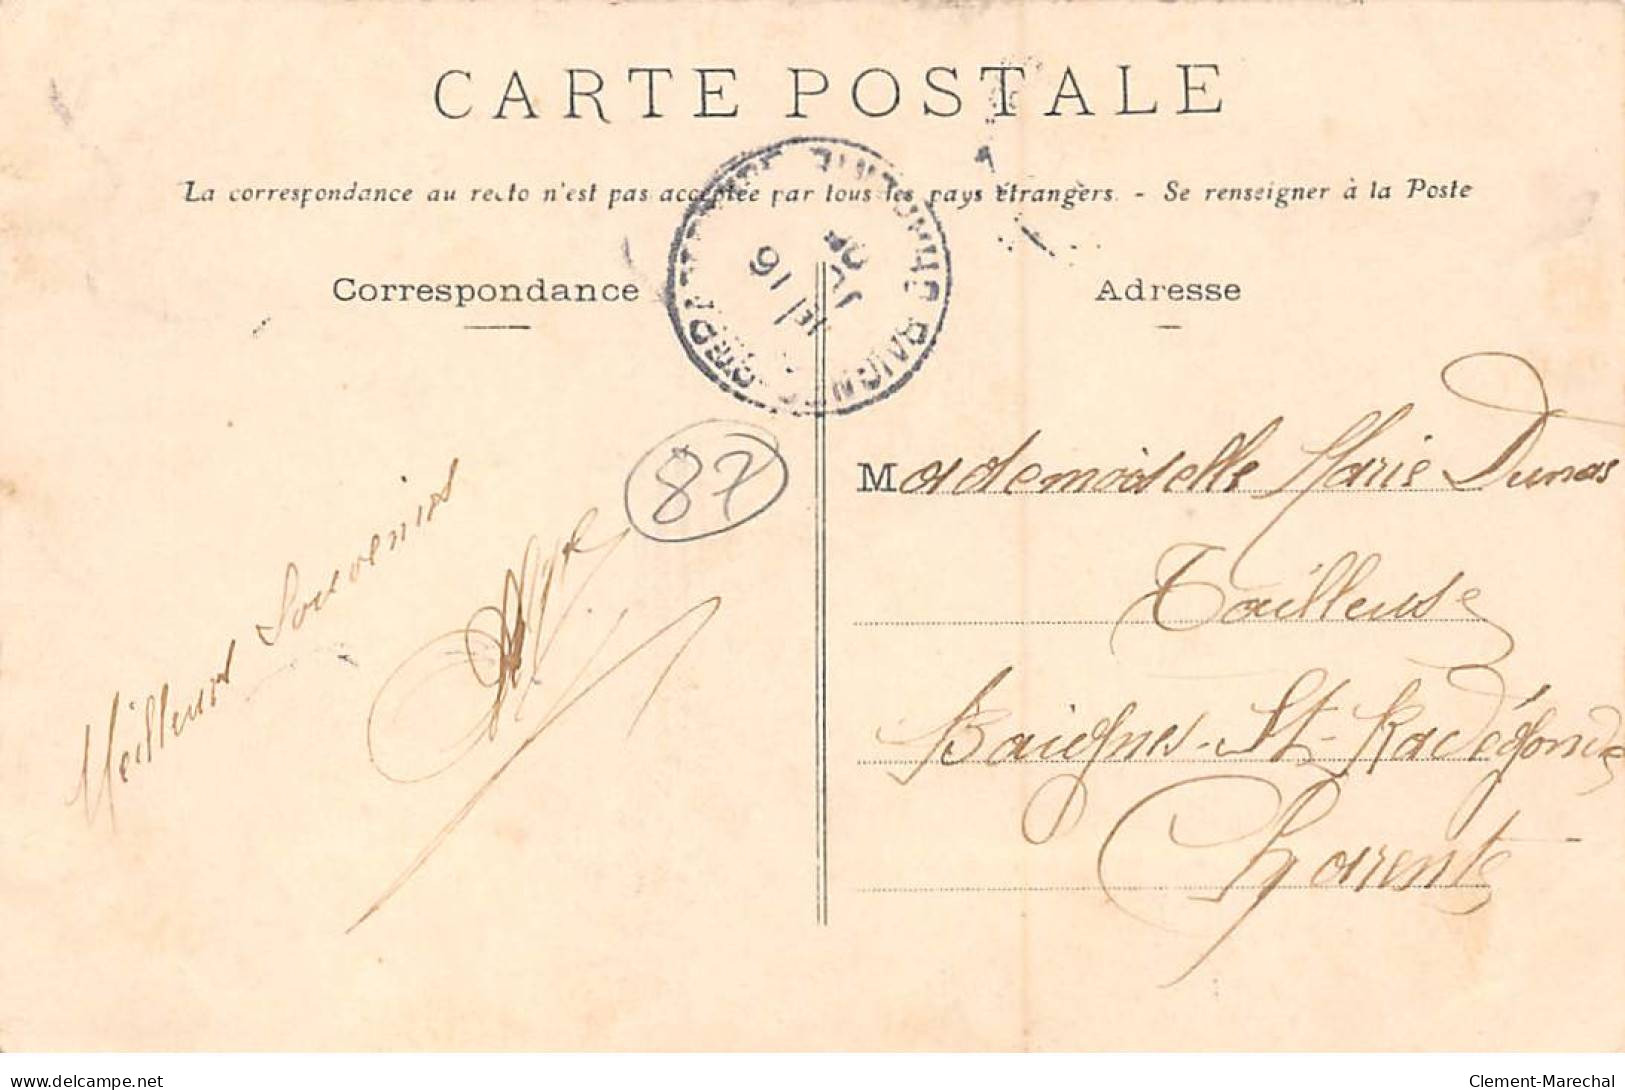 CARTE POSTALE
La correspondance au recto n'est pas acceptée par tous les pays étrangers. - Se renseigner à la Poste
Correspondance
Adresse
87
Meilleurs Souvenirs
Mademoiselle Marie Dumas
Tailleuse
Baignes-St-Radégonde
Charente
delcampe.net
Clement-Marechal